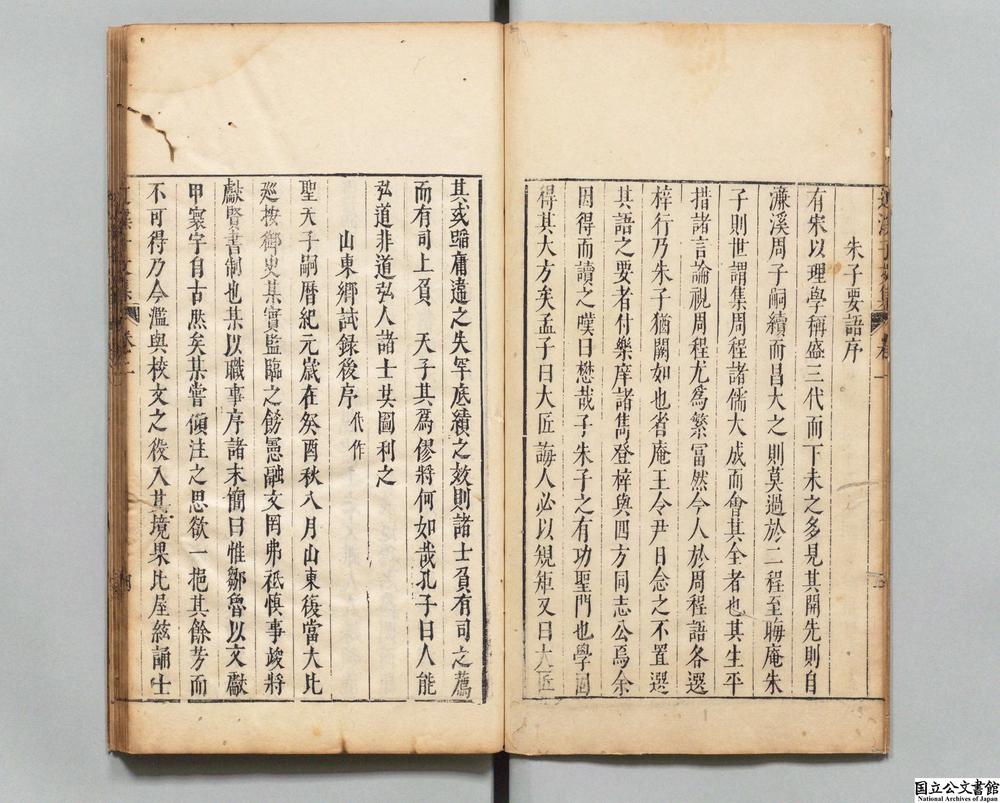 朱子要語序
有宋以理學稱盛三代而下未之多見其開先則自
濂溪周子嗣續而昌大之則莫過於二程至晦庵朱
子則世謂集周程諸儒大成而會其全者也其生平
措諸言論視周程尤為繁富然今人於周程語各選
梓行乃朱子猶闕如也省庵王令尹日念之不置選
其語之要者付樂庠諸雋登梓與四方同志公焉余
因得而讀之嘆曰懋哉子朱子之有功聖門也學固
得其大方矣孟子曰大匠誨人必以規矩又曰大匠
其或踰庸違之失罕底績之效則諸士負有司之薦
而有司上負 天子其為僇將何如哉孔子曰人能
弘道非道弘人諸士其圖利之
山東鄉試録後序 代作
聖天子嗣曆紀元歲在癸酉秋八月山東復當大比
巡按御史某實監臨之飭憲融文罔弗祗慎事竣將
獻賢書制也某以職事序諸末簡曰惟鄒魯以文獻
甲寰宇自古然矣某嘗傾注之思欲一挹其餘芳而
不可得乃今濫與校文之役入其境果比屋絃誦士
卷二
国立公文書館
National Archives of Japan